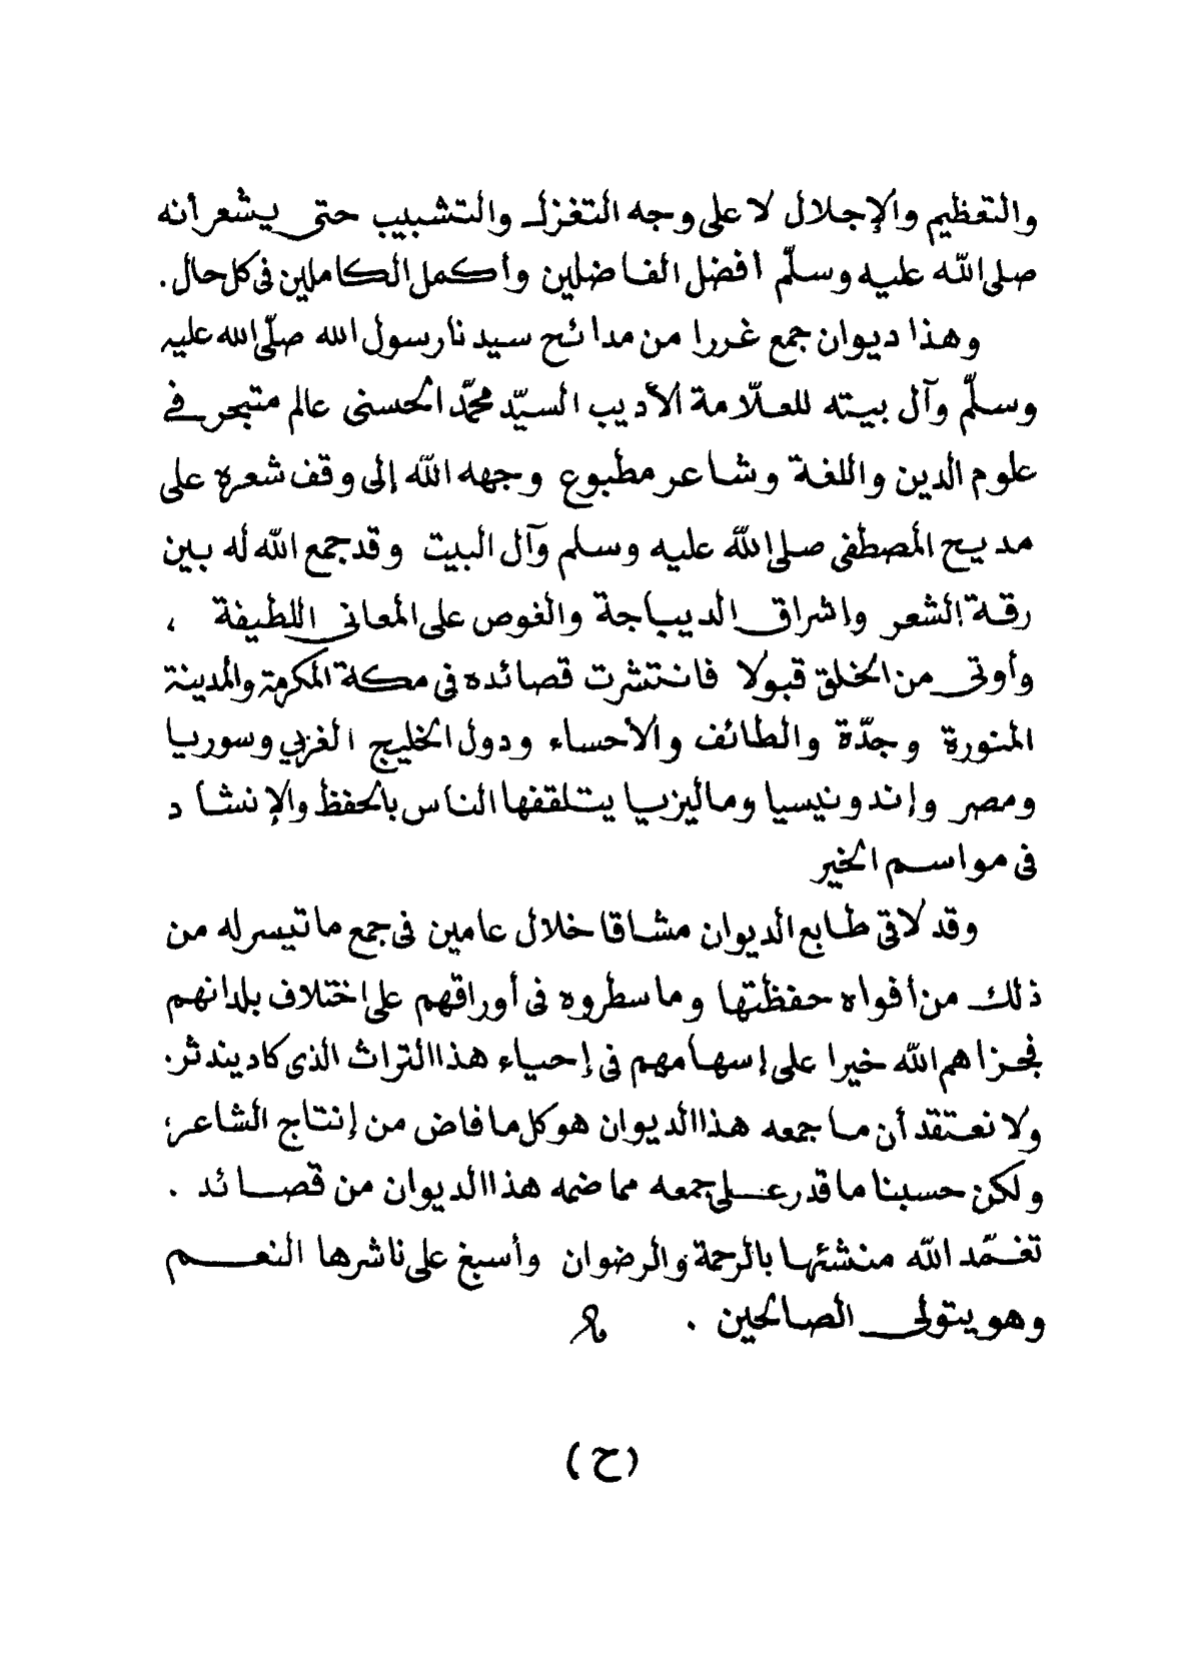 والتعظيم والإجلال لا على وجه التغزل والتشبيب حتى يشعر أنه
صلى الله عليه وسلّم أفضل الفاضلين وأكمل الكاملين فى كل حال .
وهذا ديوان جمع غررا من مدائح سيدنا رسول الله صلّى الله عليه
وسلّم وآل بيته للعلّامة الأديب السيّد محمّد الحسنى عالم متبحر فى
علوم الدين واللغة وشاعر مطبوع وجهه الله إلى وقف شعره على
مديح المصطفى صلى الله عليه وسلم وآل البيت وقد جمع الله له بين
رقة الشعر واشراق الديباجة والغوص على المعانى اللطيفة ،
وأوتى من الخلق قبولا فانتشرت قصائده فى مكة المكرمة والمدينة
المنورة وجدّة والطائف والأحساء ودول الخليج الغربي وسوريا
ومصر وإندونيسيا وماليزيا يتلقفها الناس بالحفظ والإنشاد
فى مواسم الخير
وقد لاقى طابع الديوان مشاقا خلال عامين فى جمع ما تيسر له من
ذلك من أفواه حفظتها وما سطروه فى أوراقهم على اختلاف بلدانهم
فجزاهم الله خيرا على إسهامهم فى إحياء هذا التراث الذى كاد يندثر .
ولا نعتقد أن ما جمعه هذا الديوان هو كل ما فاض من إنتاج الشاعر ،
ولكن حسبنا ما قدر على جمعه مما ضمه هذا الديوان من قصائد .
تغمّد الله منشئها بالرحمة والرضوان وأسبغ على ناشرها النعم
وهو يتولى الصالحين .
( ح )